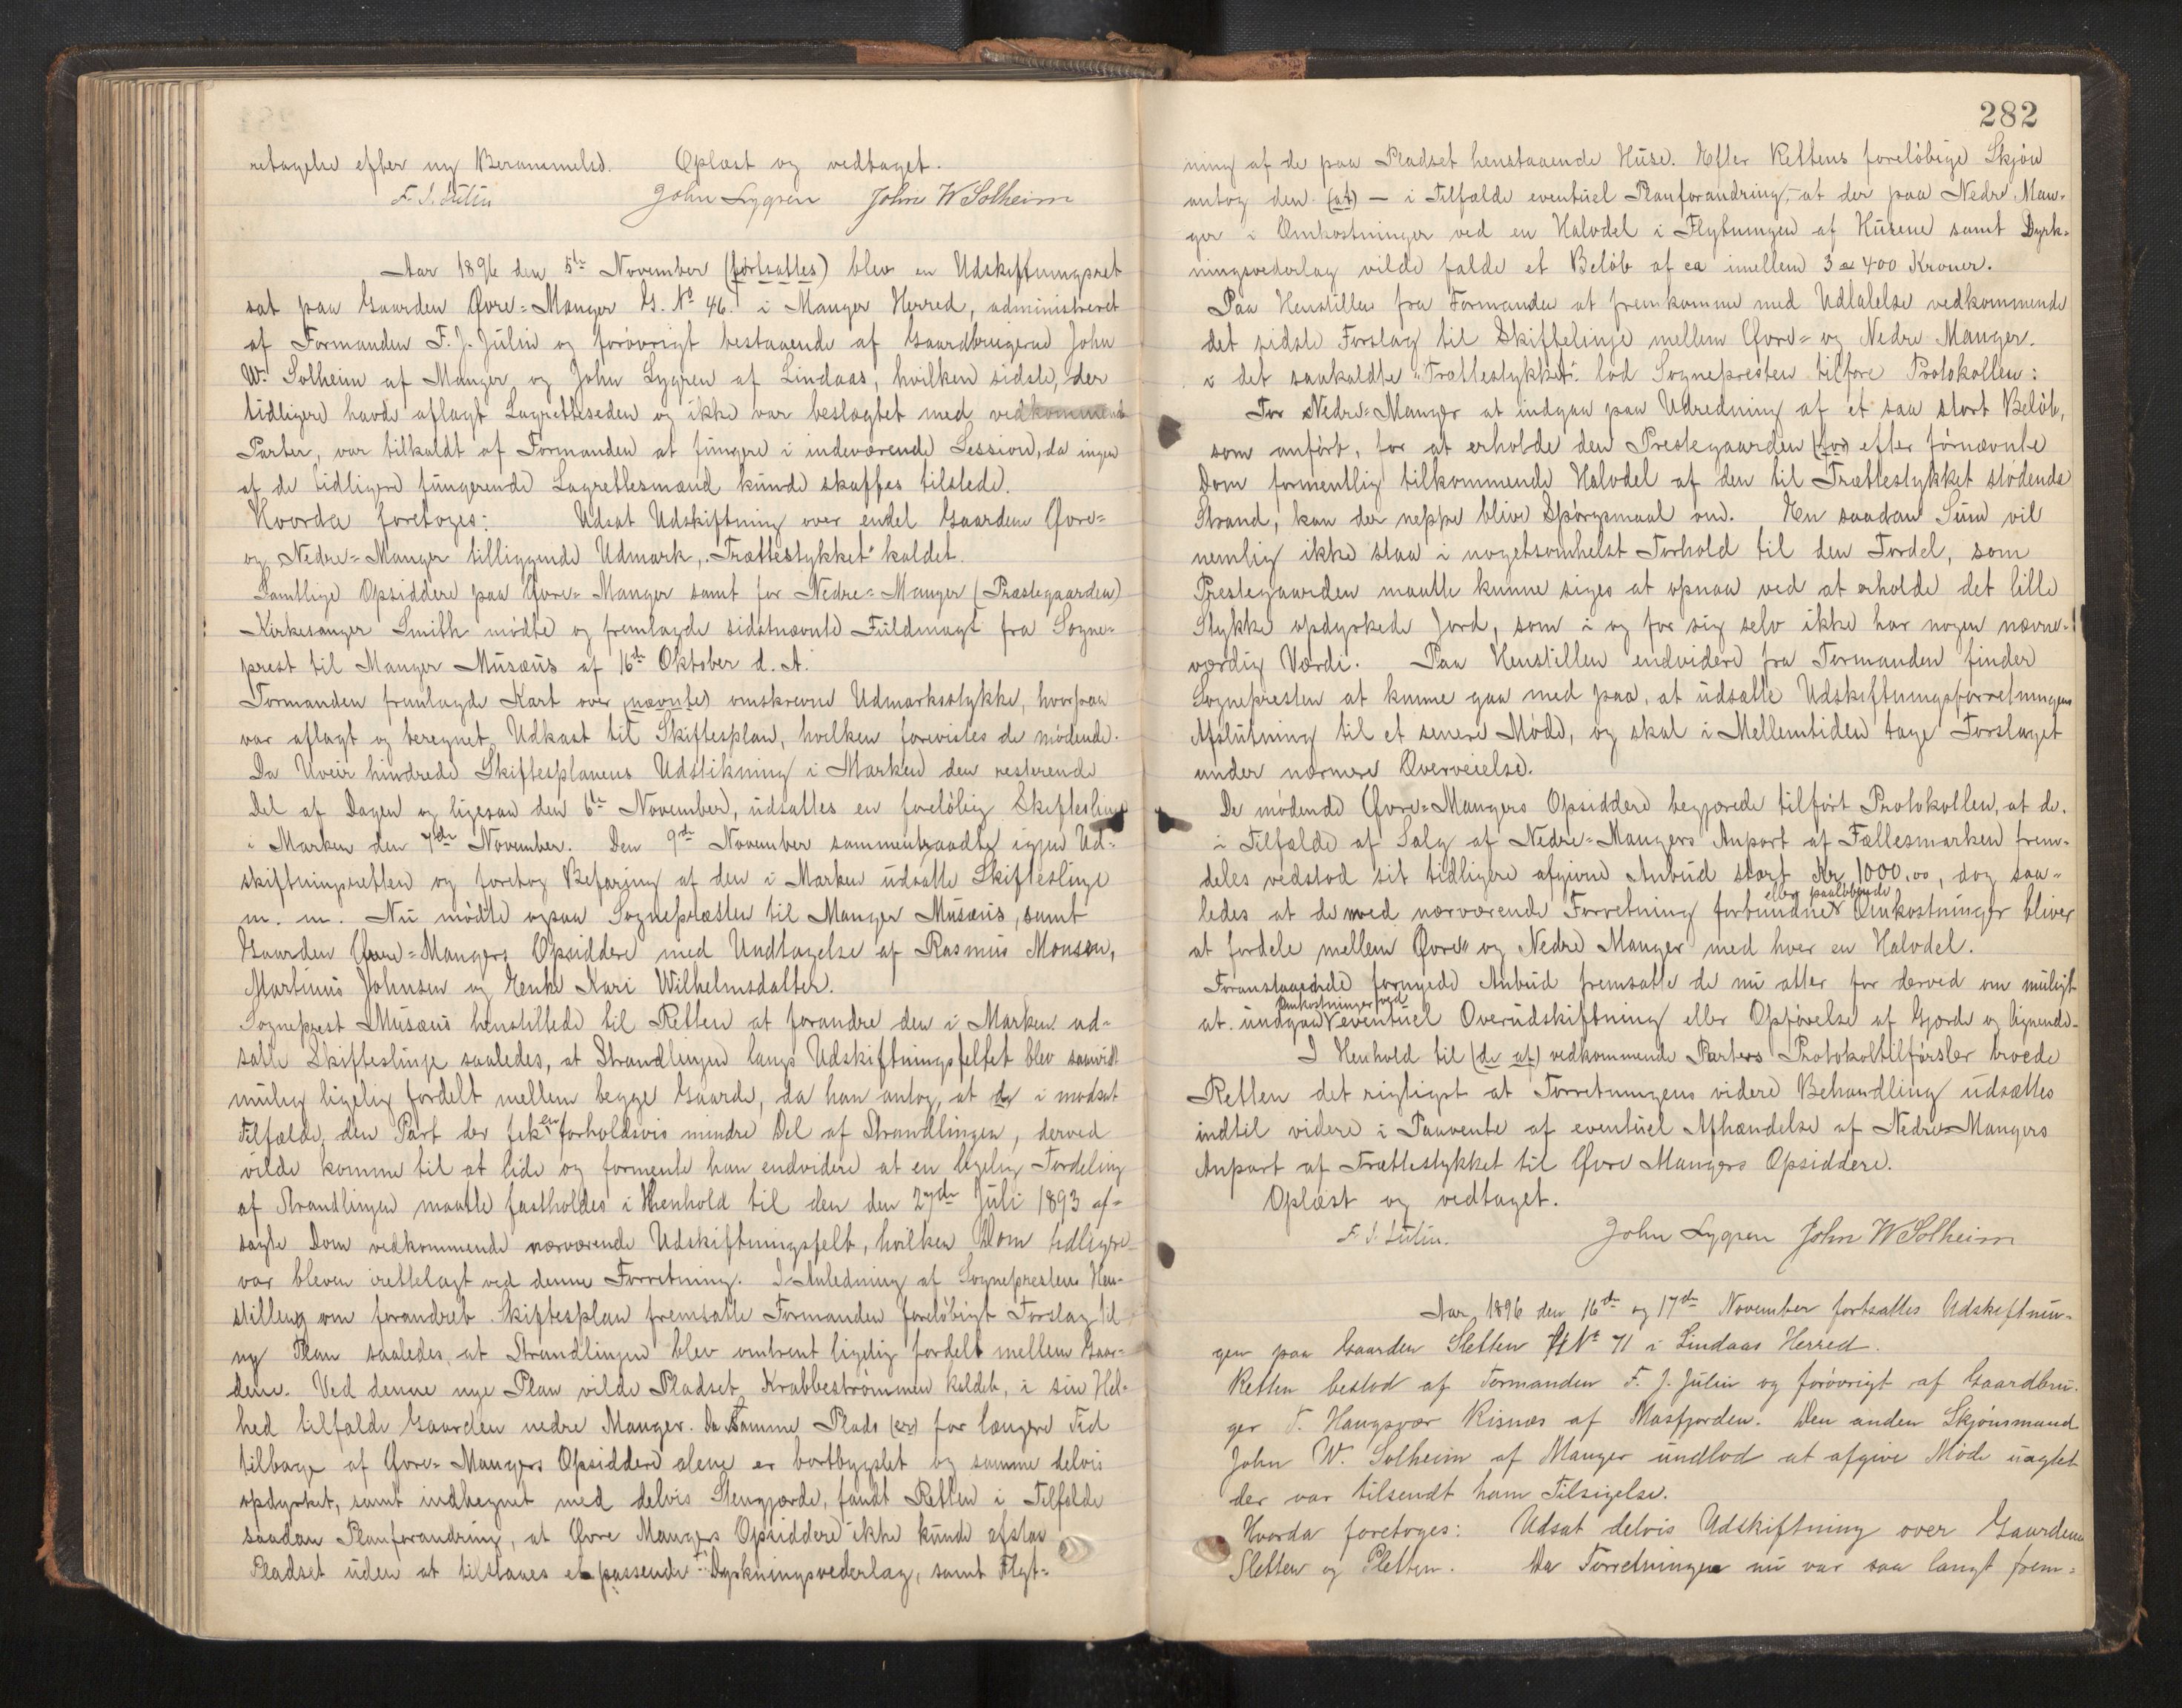 retagelse efter ny Berammelse. Oplæst og vedtaget.
F. J. Julin John Lygren John W Solheim
Aar 1896 den 5te November (fortsattes) blev en Udskiftningsret
sat paa Gaarden Øvre-Manger G. No 46. i Manger Herred, administreret
af Formanden F. J. Julin og forøvrigt bestaaende af Gaardbrugerne John
W. Solheim af Manger og John Lygren af Lindaas, hvilken sidste, der
tidligere havde aflagt Lagretteseden og ikke var beslægtet med vedkommende
Parter, var tilkaldt af Formanden at fungere i indeværende Session, da ingen
af de tidligere fungerende Lagrettesmænd kunde skaffes tilstede.
Hvorda foretoges: Udsat Udskiftning over endel Gaarden Øvre-
og Nedre-Manger tilliggende Udmark, "Trættestykket" kaldet.
Samtlige Opsiddere paa Øvre-Manger samt for Nedre-Manger (Præstegaarden)
Kirkesanger Smith mødte og fremlagde sidstnævnte Fuldmagt fra Sogne-
prest til Manger Musæus af 16de Oktober d. A.
Formanden fremlagde Kart over (nævnte) omskrevne Udmarksstykke, hvorpaa
var aflagt og beregnet Udkast til Skiftesplan, hvilken forevistes de mødende.
Da Uveir hindrede Skiftesplanens Udstikning i Marken den resterende
Del af Dagen og ligesaa den 6te November, udsattes en foreløbig Skifteslinje
i Marken den 7de November. Den 9de November sammentraadte igjen Ud-
skiftningsretten og foretog Befaring af den i Marken udsatte Skifteslinje
m. m. Nu mødte ogsaa Sognepræsten til Manger Musæus, samt
Gaarden Øvre-Mangers Opsiddere med Undtagelse af Rasmus Monsen,
Martinus Johnsen og Enke Kari Wilhelmsdatter.
Sogneprest Musæus henstillede til Retten at forandre den i Marken ud-
satte Skifteslinje saaledes, at Strandlinjen langs Udskiftningsfeltet blev saavidt
mulig ligelig fordelt mellem begge Gaarde, da han antog, at der i modsat
Tilfælde, den Part der fik en forholdsvis mindre Del af Strandlinjen, derved
vilde komme til at lide og formente han endvidere at en ligelig Fordeling
af Strandlinjen maatte fastholdes i Henhold til den den 27de Juli 1893 af-
sagte Dom vedkommende nærværende Udskiftningsfelt, hvilken Dom tidligere
var bleven irettelagt ved denne Forretning. I Anledning af Sogneprestens Hen-
stilling om forandret Skiftesplan fremsatte Formanden foreløbigt Forslag til
ny Plan saaledes, at Strandlinjen blev omtrent ligelig fordelt mellem Gaar-
dene. Ved denne nye Plan vilde Pladset Krabbestrømmen kaldet, i sin Hel-
hed tilfalde Gaarden nedre Manger. Da samme Plads (er) for længere Tid
tilbage af Øvre-Mangers Opsiddere alene er bortbygslet og samme delvis
opdyrket, samt indhegnet med delvis Stengjærde, fandt Retten i Tilfælde
saadan Planforandring, at Øvre Mangers Opsiddere ikke kunde afstaa
Pladset uden at tilstaaes et passende Dyrkningsvederlag, samt Flyt-
282
ning af de paa Pladset henstaaende Huse. Efter Rettens foreløbige Skjøn
antog den (at) — i Tilfælde eventuel Planforandring, — at der paa Nedre Man-
ger i Omkostninger ved en Halvdel i Flytningen af Husene samt Dyrk-
ningsvederlag vilde falde et Beløb af ca imellem 3 a 400 Kroner.
Paa Henstillen fra Formanden at fremkomme med Udtalelse vedkommende
det sidste Forslag til Skiftelinje mellem Øvre- og Nedre Manger
i det saakaldte "Trættestykket" lod Sognepresten tilføre Protokollen:
For Nedre-Manger at indgaa paa Udredning af et saa stort Beløb,
som anført, for at erholde den Prestegaarden (for) efter førnævnte
Dom formentlig tilkommende Halvdel af den til Trættestykket stødende
Strand, kan der neppe blive Spørgsmaal om. En saadan Sum vil
nemlig ikke staa i nogetsomhelst Forhold til den Fordel, som
Prestegaarden maatte kunne siges at opnaa ved at erholde det lille
Stykke opdyrkede Jord, som i og for sig selv ikke har nogen nævne-
værdig Værdi. Paa Henstillen endvidere fra Formanden finder
Sognepresten at kunne gaa med paa, at udsætte Udskiftningsforretningens
Afslutning til et senere Møde, og skal i Mellemtiden tage Forslaget
under nærmere Overveielse.
De mødende Øvre-Mangers Opsiddere begjærede tilført Protokollen, at de
i Tilfælde af Salg af Nedre-Mangers Anpart af Fællesmarken frem-
deles vedstod sit tidligere afgivne Anbud stort Kr. 1000.00, dog saa-
ledes at de med nærværende Forretning forbundne eller paaløbende Omkostninger bliver
at fordele mellem Øvre- og Nedre Manger med hver en Halvdel.
Foranstaaende fornyede Anbud fremsatte de nu atter for derved om muligt
at undgaa Omkostninger ved eventuel Overudskiftning eller Opførelse af Gjærde og lignende.
I Henhold til (de af) vedkommende Parters Protokoltilførsler troede
Retten det rigtigst at Forretningens videre Behandling udsættes
indtil videre i Paavente af eventuel Afhændelse af Nedre-Mangers
Anpart af Trættestykket til Øvre Mangers Opsiddere.
Oplæst og vedtaget.
F. J. Julin. John Lygren John W Solheim
Aar 1896 den 16de og 17de November fortsattes Udskiftnin-
gen paa Gaarden Sletten G No 71 i Lindaas Herred.
Retten bestod af Formanden F. J. Julin og forøvrigt af Gaardbru-
ger T. Haugsvær Risnæs af Masfjorden. Den anden Skjønsmand
John W. Solheim af Manger undlod at afgive Møde uagtet
der var tilsendt ham Tilsigelse.
Hvorda foretoges: Udsat delvis Udskiftning over Gaardene
Sletten og Pletten. Da Forretningen nu var saa langt frem-